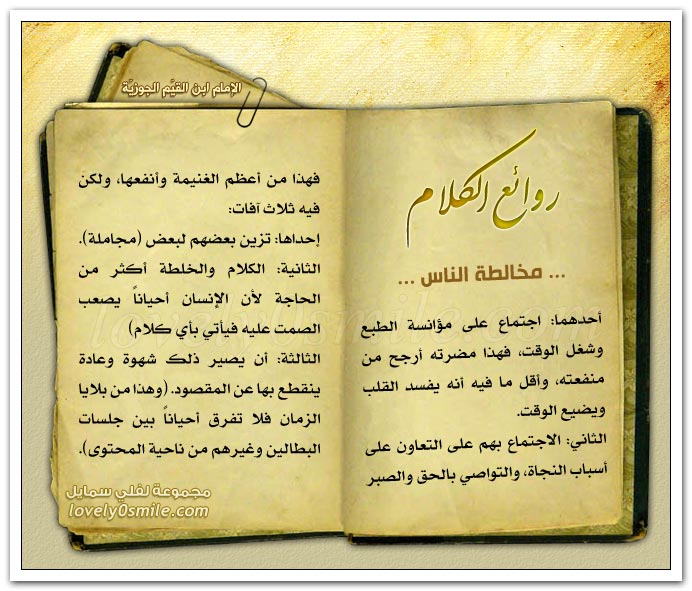 الإمام ابن القيَّم الجوزيَّة
روائع الكلام
... مخالطة الناس ...
أحدهما: اجتماع على مؤانسة الطبع
وشغل الوقت، فهذا مضرته أرجح من
منفعته، وأقل ما فيه أنه يفسد القلب
ويضيع الوقت.
الثاني: الاجتماع بهم على التعاون على
أسباب النجاة، والتواصي بالحق والصبر
فهذا من أعظم الغنيمة وأنفعها، ولكن
فيه ثلاث آفات:
إحداها: تزين بعضهم لبعض (مجاملة).
الثانية: الكلام والخلطة أكثر من
الحاجة لأن الإنسان أحياناً يصعب
الصمت عليه فيأتي بأي كلام)
الثالثة: أن يصير ذلك شهوة وعادة
ينقطع بها عن المقصود. (وهذا من بلايا
الزمان فلا تفرق أحياناً بين جلسات
البطالين وغيرهم من ناحية المحتوى).
مجموعة لفلي سمايل
lovely0smile.com
lovely0smile.com